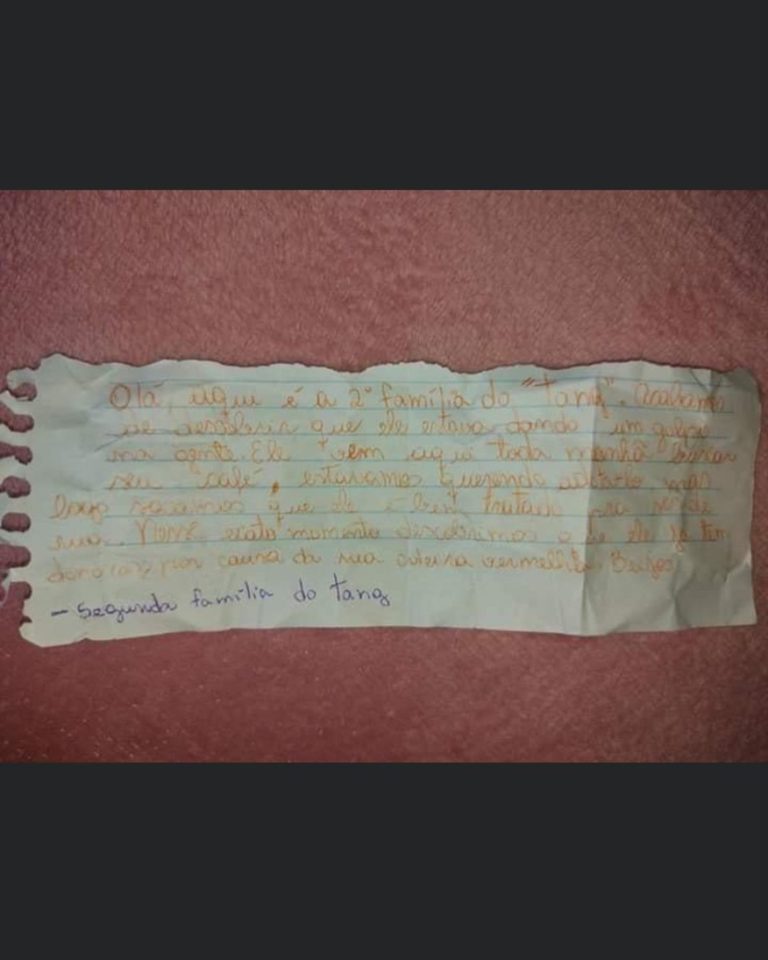 Olá, aqui é a 2ª família do "Tang". Acabamos
de descobrir que ele estava dando um golpe
na gente. Ele vem aqui toda manhã buscar
seu café, estavamos querendo adotá-lo mas
logo vimos que ele é bem tratado pra ser de
rua. Nesse exato momento descobrimos que ele já tem
dono(as) por causa da sua coleira vermelha. Beijos
- Segunda família do tang